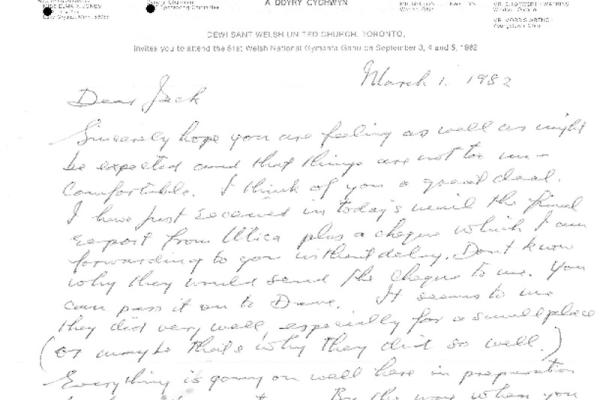 A DDYRY CYDRWYN
DEWI SANT WELSH UNITED CHURCH, TORONTO,
Invites you to attend the 51st Welsh National Gymanfa Ganu on September 3, 4 and 5, 1982
March 1, 1982
Dear Jack
Sincerely hope you are feeling as well as might
be expected and that things are not too un-
comfortable. I think of you a great deal.
I have just received in today's mail the final
report from Utica plus a cheque which I am
forwarding to you without delay. Don't know
why they would send the cheque to me. You
can pass it on to
It seems to me
they did very well, especially for a small place
(or maybe that's why they did so well.)
Everything is going on well here in preparation
By the way when you